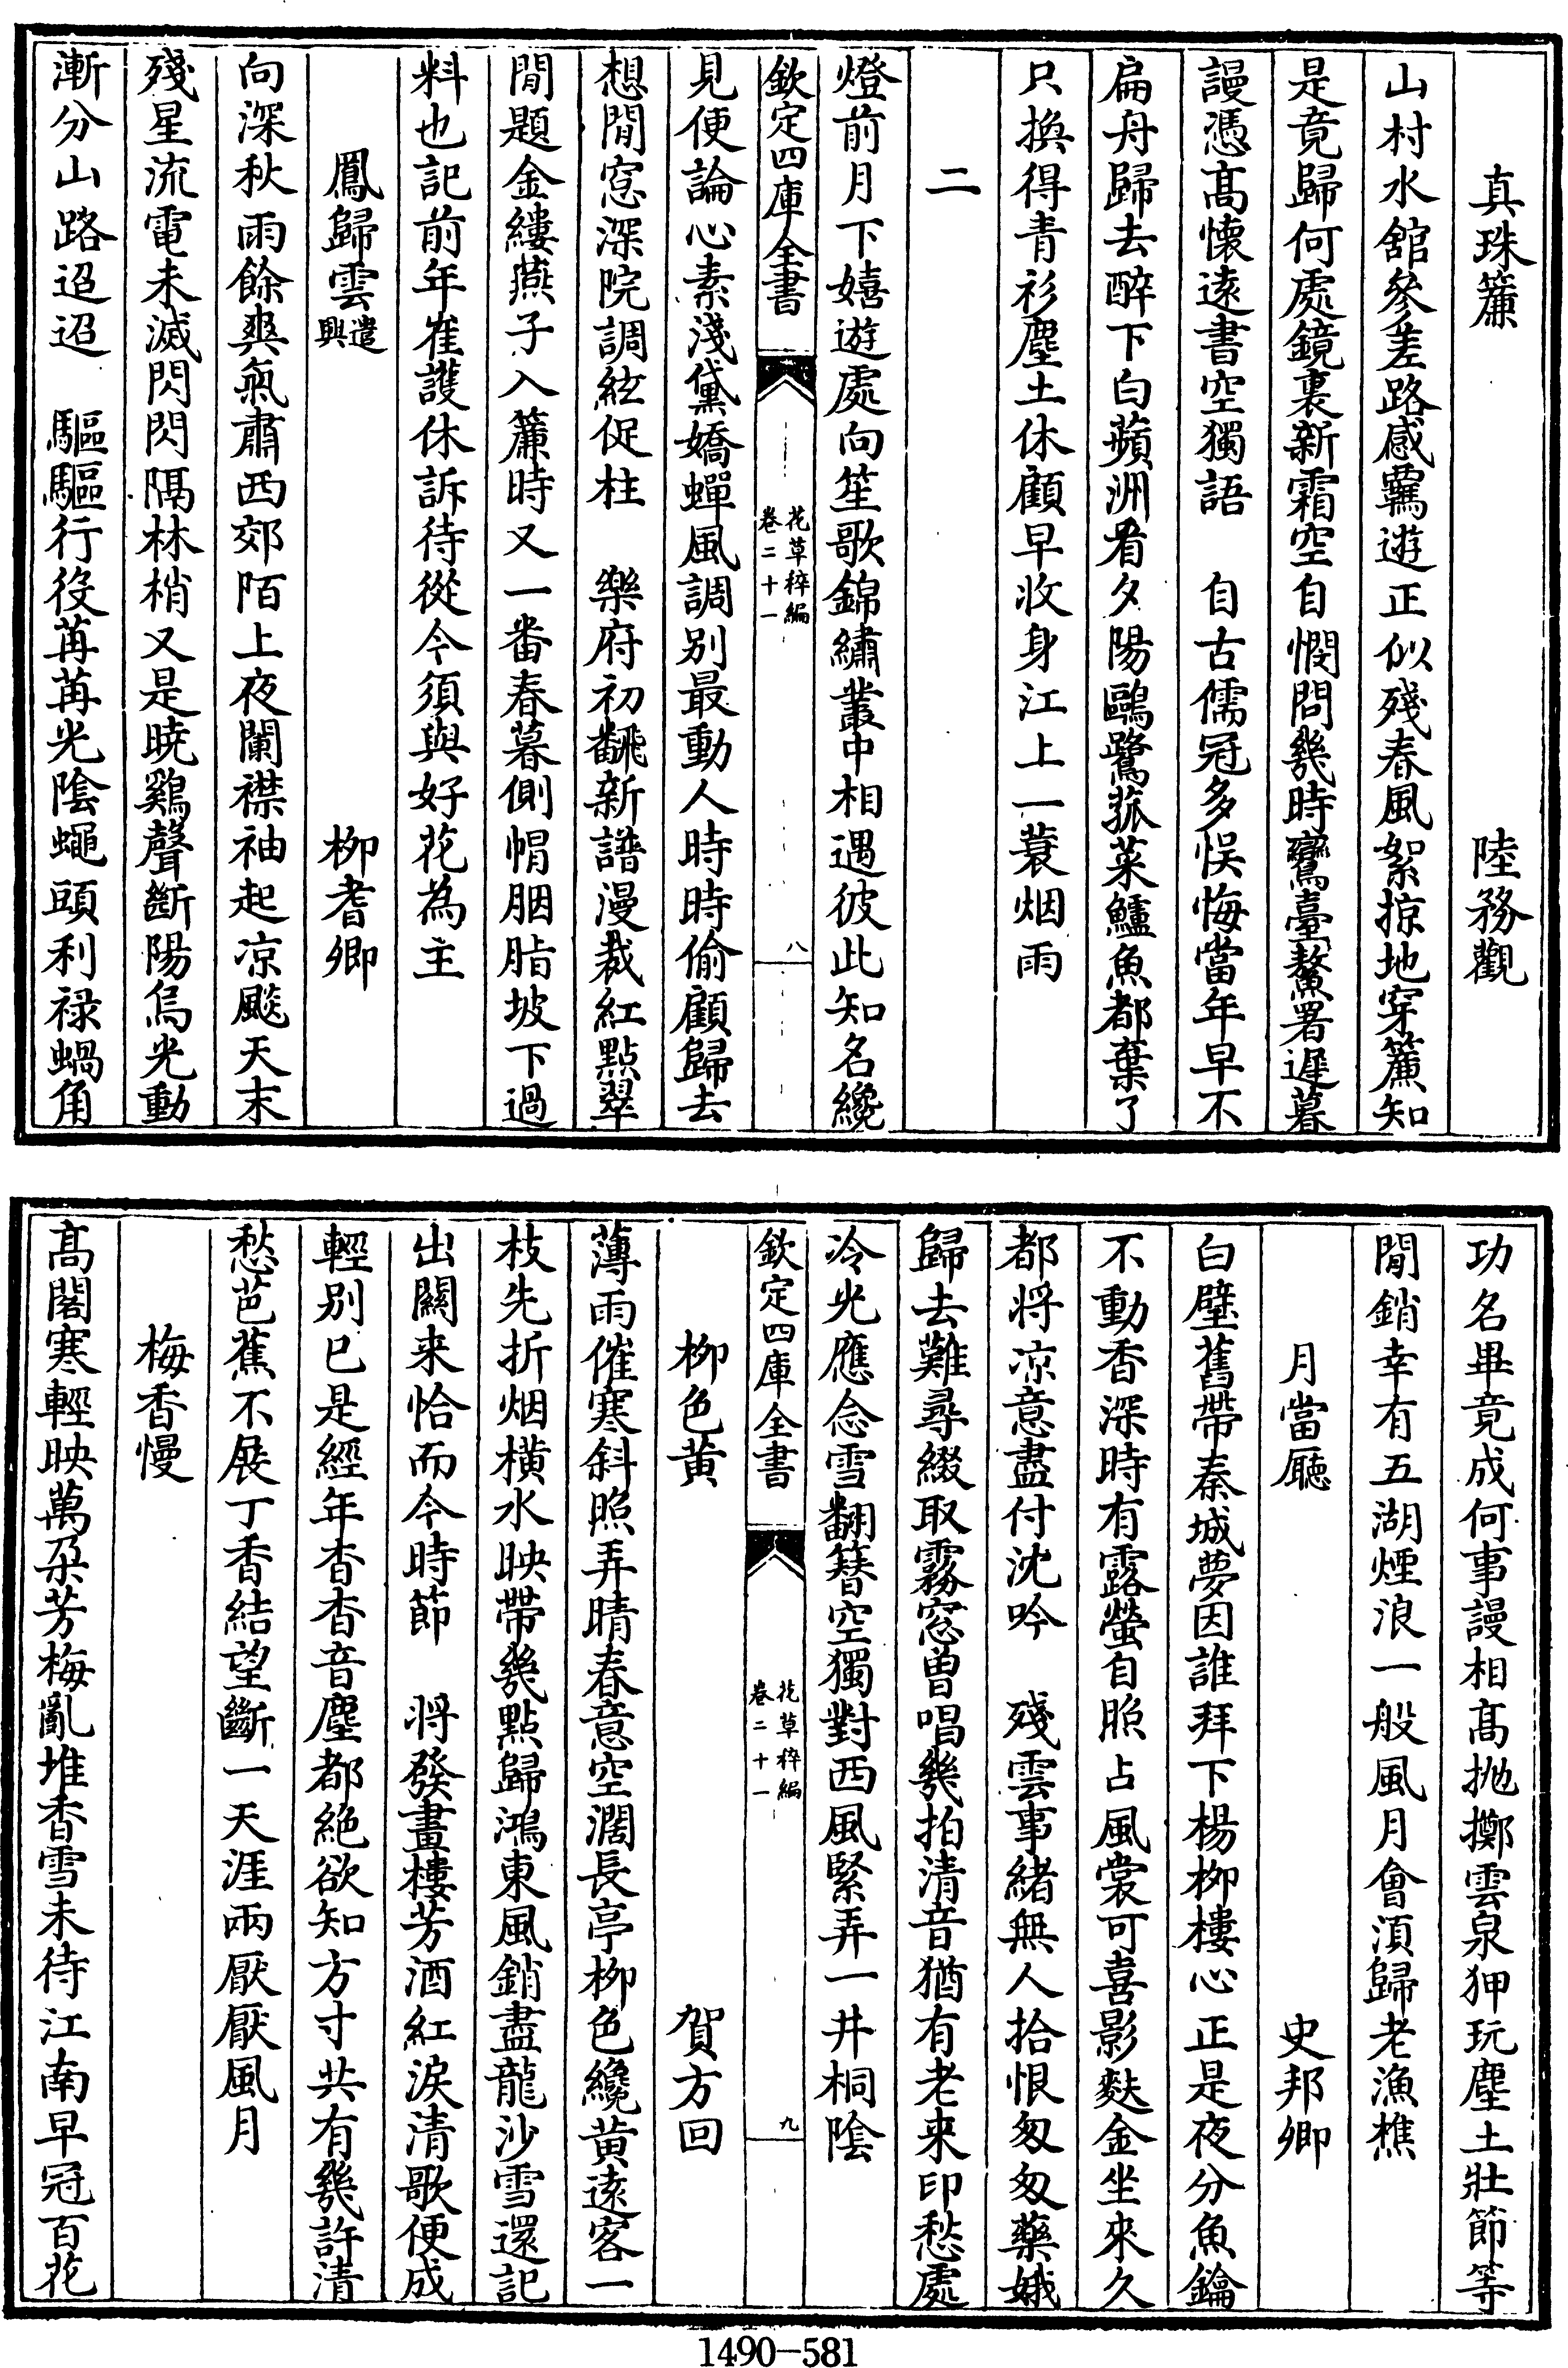 真珠簾　陸務觀
山村水舘參差路感羈遊正似殘春風絮掠地穿簾知
是竟歸何處鏡裏新霜空自憫問幾時鸞臺鰲署遲暮
謾憑髙懐逺書空獨語　自古儒冠多悞悔當年早不
扁舟歸去醉下白蘋洲看夕陽鷗鷺菰菜鱸魚都棄了
只換得青衫塵土休顧早收身江上一蓑烟雨
二
燈前月下嬉遊處向笙歌錦繡叢中相遇彼此知名纔
欽定四庫全書　花草稡編　卷二十一　八
見便論心素淺黛嬌蟬風調别最動人時時偷顧歸去
想閒窓深院調絃促柱　樂府初飜新譜漫裁紅點翠
閒題金縷燕子入簾時又一番春暮側帽胭脂坡下過
料也記前年崔護休訴待從今須與好花為主
鳳歸雲遣興　柳耆卿
向深秋雨餘爽氣肅西郊陌上夜闌襟袖起凉颸天末
殘星流電未滅閃閃隔林梢又是暁鷄聲斷陽烏光動
漸分山路迢迢　驅驅行役苒苒光陰蠅頭利禄蝸角
功名畢竟成何事謾相髙抛擲雲泉狎玩塵土壯節等
閒銷幸有五湖煙浪一般風月會湏歸老漁樵
月當㕔　史邦卿
白璧舊帶秦城夢因誰拜下楊柳樓心正是夜分魚鑰
不動香深時有露螢自照占風裳可喜影麩金坐來久
都将凉意盡付沈吟　殘雲事緒無人拾恨匆匆藥娥
歸去難尋綴取霧窓曽唱幾拍清音猶有老来印愁處
冷光應念雪翻簪空獨對西風緊弄一井桐陰
欽定四庫全書　花草稡編　卷二十一　九
柳色黄　賀方回
薄雨催寒斜照弄晴春意空濶長亭柳色纔黄逺客一
枝先折烟横水映帶幾點歸鴻東風銷盡龍沙雪還記
出關来恰而今時節　将發畫樓芳酒紅淚清歌便成
輕别已是經年杳杳音塵都絶欲知方寸共有幾許清
愁芭蕉不展丁香結望斷一天涯兩厭厭風月
梅香慢
髙閣寒輕映萬朶芳梅亂堆香雪未待江南早冠百花
1490-581